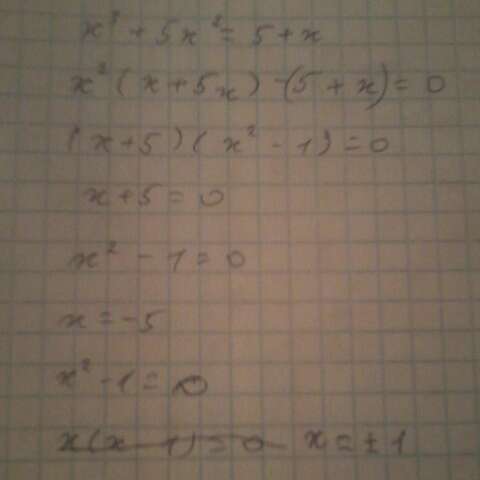 x³ + 5x² = 5 + x
x²(x + 5x) - (5 + x) = 0
(x + 5)(x² - 1) = 0
x + 5 = 0
x² - 1 = 0
x = -5
x² - 1 = 0
x(x - 1) = 0 x = ± 1